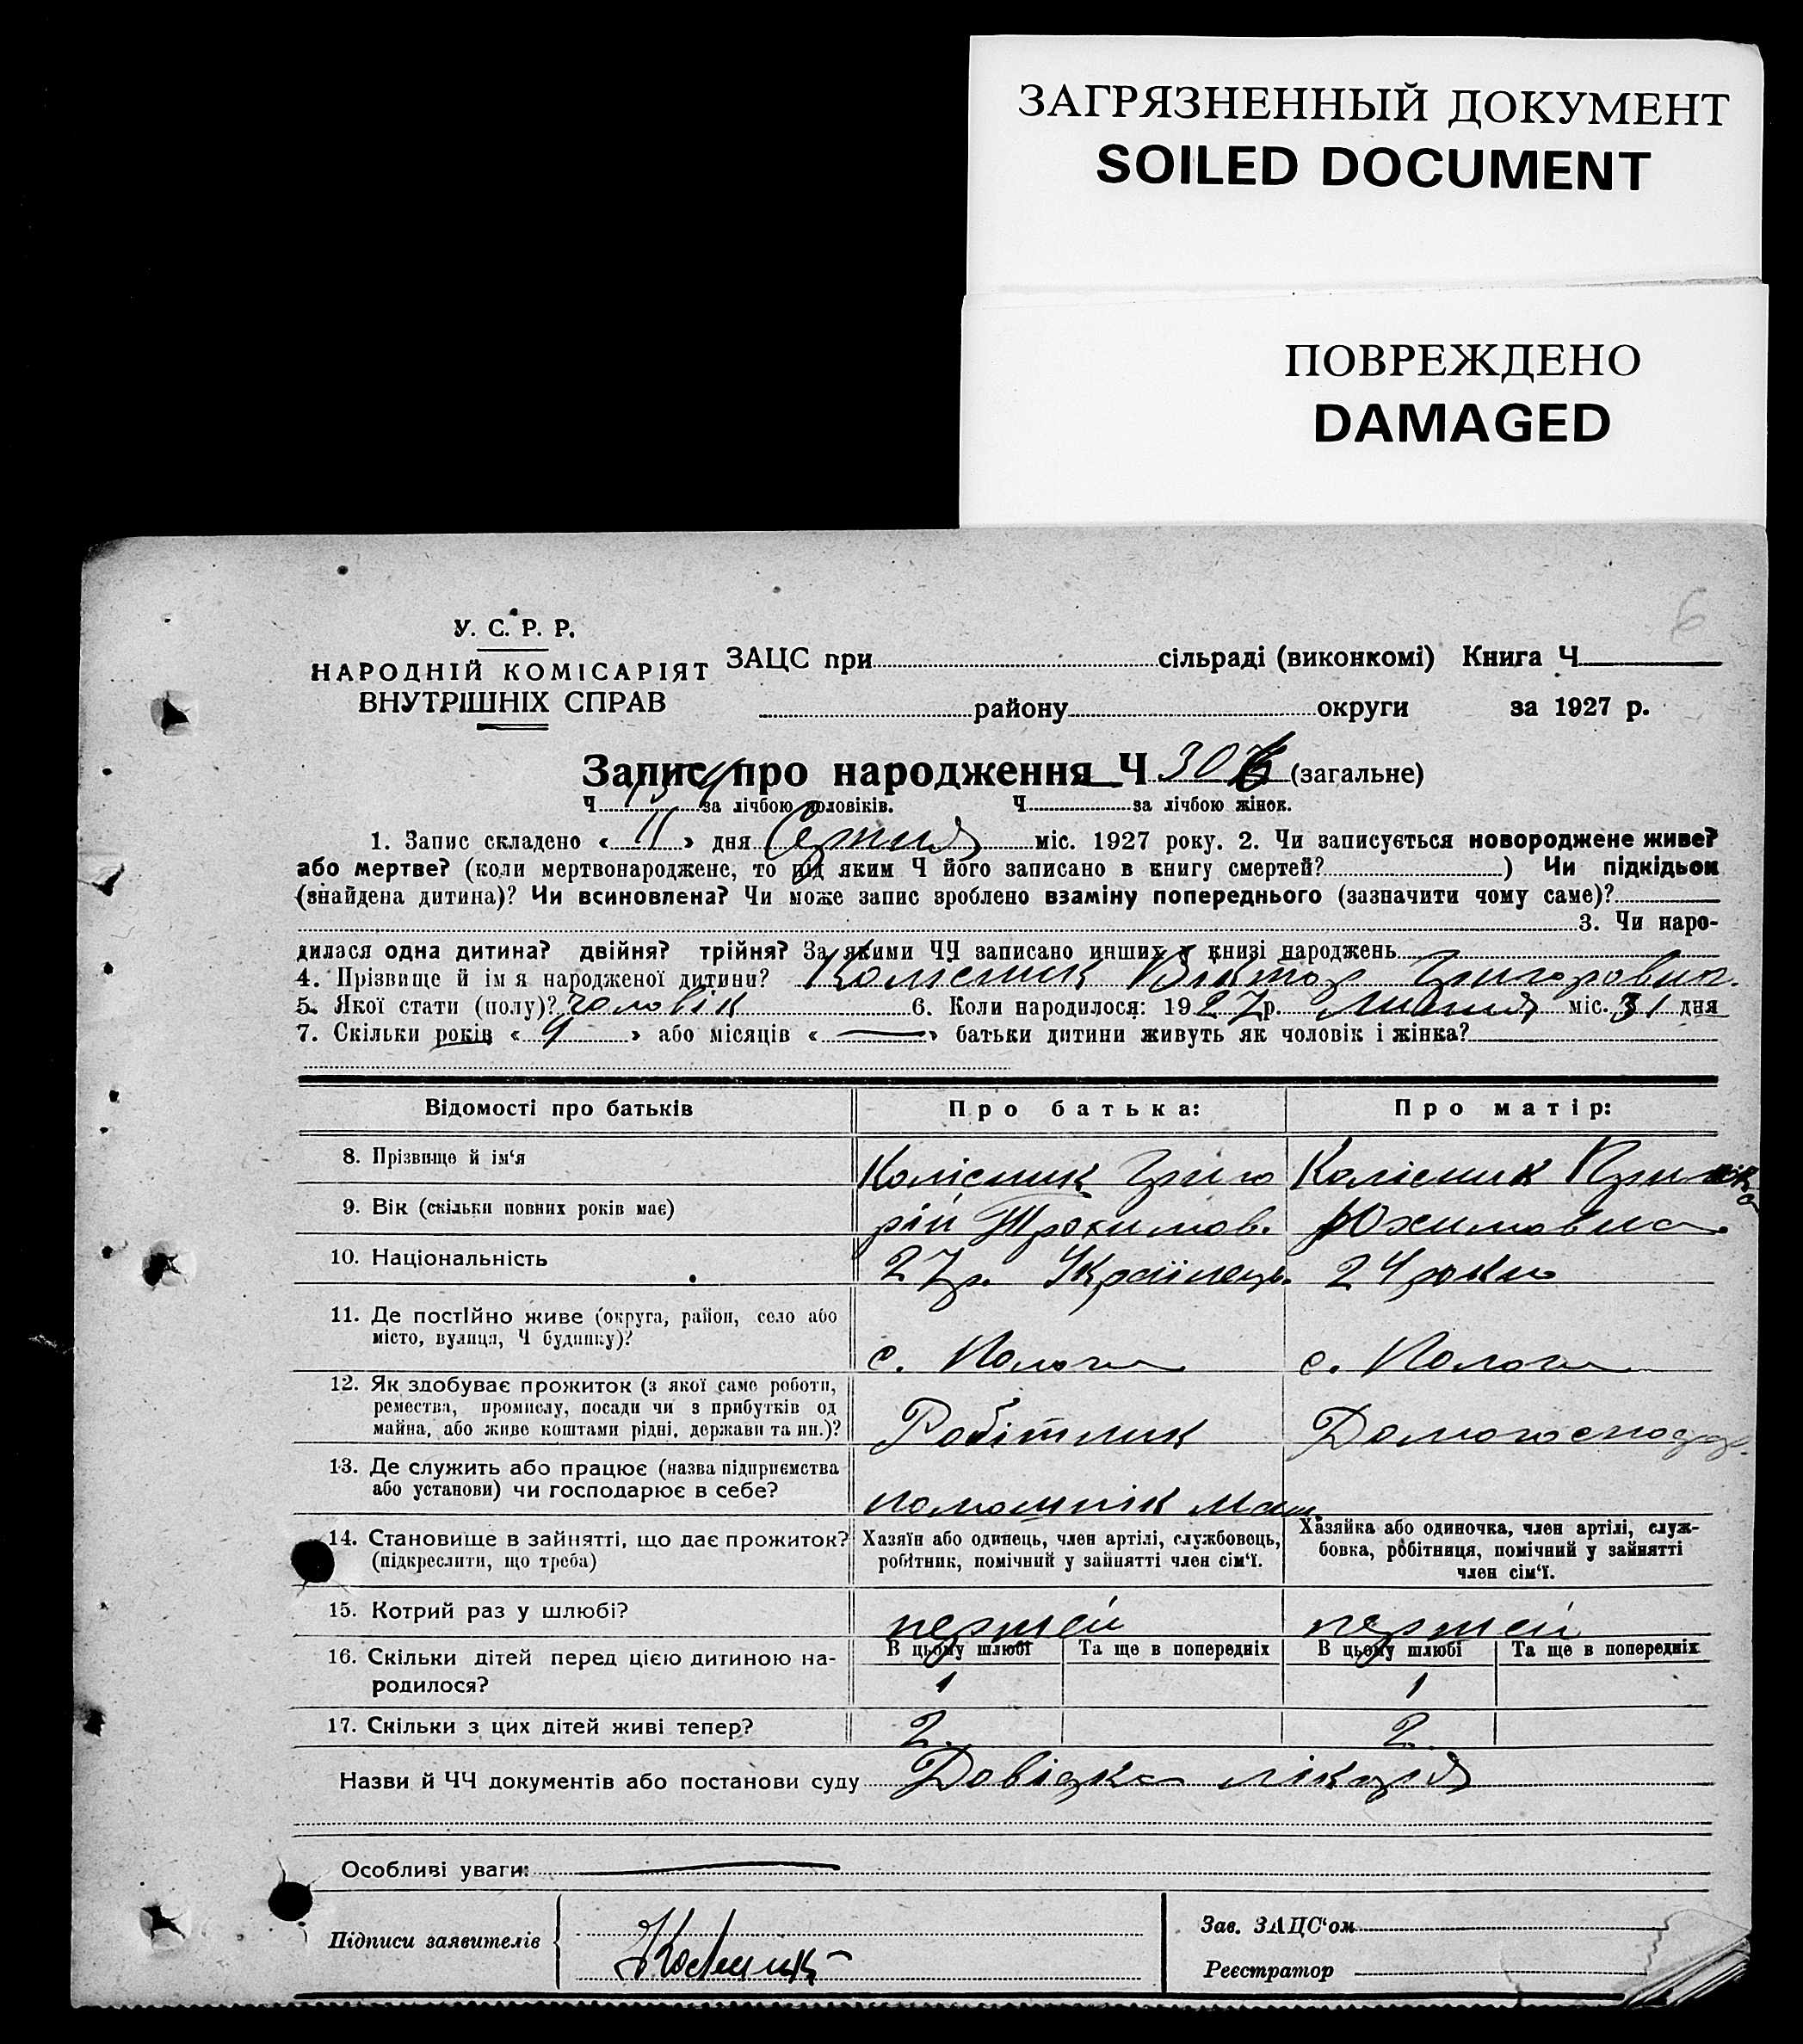 ЗАГРЯЗНЕННЫЙ ДОКУМЕНТ
SOILED DOCUMENT
ПОВРЕЖДЕНО
DAMAGED
6
У. С. Р. Р.
НАРОДНІЙ КОМІСАРІЯТ
ВНУТРІШНІХ СПРАВ
ЗАЦС при сільраді (виконкомі) Книга Ч
району округи за 1927 р.
Запис про народження Ч 30 (загальне)
Ч 154 за лічбою чоловіків. Ч за лічбою жінок.
1. Запис складено « 11 » дня Серпня міс. 1927 року. 2. Чи записується новороджене живе?
або мертве? (коли мертвонароджене, то під яким Ч його записано в книгу смертей? ) Чи підкідьок
(знайдена дитина)? Чи всиновлена? Чи може запис зроблено взаміну попереднього (зазначити чому саме)?
3. Чи наро-
дилася одна дитина? двійня? трійня? За якими ЧЧ записано инших у книзі народжень
4. Прізвище й ім я народженої дитини? Колісник Віктор Григорович.
5. Якої стати (полу)? чоловік 6. Коли народилося: 1927 р. Липня міс. 31 дня
7. Скільки років « 4 » або місяців « — » батьки дитини живуть як чоловік і жінка?
Відомості про батьків Про батька: Про матір:
8. Прізвище й ім‘я Колісник Григо Колісник
9. Вік (скільки повних років має) рій Трохимов. Юхимовна.
10. Національність 27р. Українець. 24 роки
11. Де постійно живе (округа, район, село або
місто, вулиця, Ч будинку)? с. Пологи с. Пологи
12. Як здобуває прожиток (з якої саме роботи,
ремества, промислу, посади чи з прибутків од
майна, або живе коштами рідні, держави та ин.)? Робітник Домогосподар.
13. Де служить або працює (назва підприємства
або установи) чи господарює в себе? помошнік маш.
14. Становище в зайнятті, що дає прожиток? Хазяїн або одинець, член артілі, службовець, Хазяйка або одиночка, член артілі, служ-
(підкреслити, що треба) робітник, помічний у зайнятті член сім‘ї. бовка, робітниця, помічний у зайнятті
член сім‘ї.
15. Котрий раз у шлюбі? першей першей
16. Скільки дітей перед цією дитиною на- В цьому шлюбі Та ще в попередніх В цьому шлюбі Та ще в попередніх
родилося? 1 1
17. Скільки з цих дітей живі тепер? 2. 2.
Назви й ЧЧ документів або постанови суду Довідка лікаря
Особливі уваги: —
Підписи заявителів Зав. ЗАЦС‘ом
Реєстратор